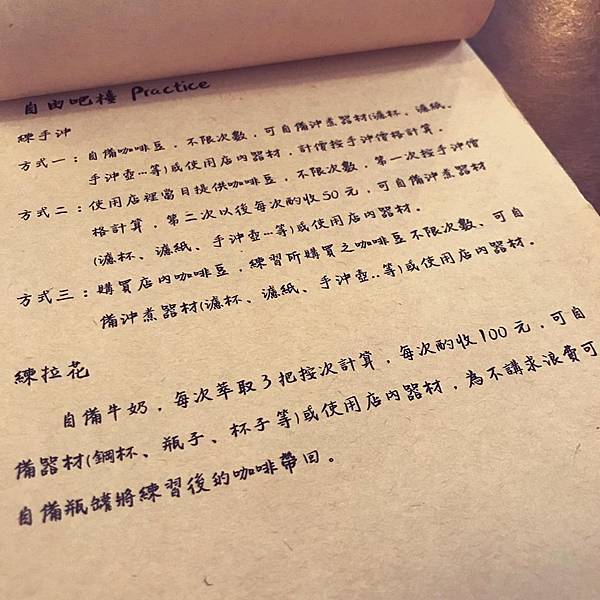 自由吧檯 Practice
練手沖
方式一：自備咖啡豆，不限次數，可自備沖煮器材(濾杯、濾紙、
手沖壺...等)或使用店內器材，計價按手沖價格計算。
方式二：使用店裡當日提供咖啡豆，不限次數，第一次按手沖價
格計算，第二次以後每次酌收50元，可自備沖煮器材
(濾杯、濾紙、手沖壺...等)或使用店內器材。
方式三：購買店內咖啡豆，練習所購買之咖啡豆不限次數、可自
備沖煮器材(濾杯、濾紙、手沖壺...等)或使用店內器材。
練拉花
自備牛奶，每次萃取3把按次計算，每次酌收100元，可自
備器材(鋼杯、瓶子、杯子等)或使用店內器材，為不講求浪費可
自備瓶罐將練習後的咖啡帶回。